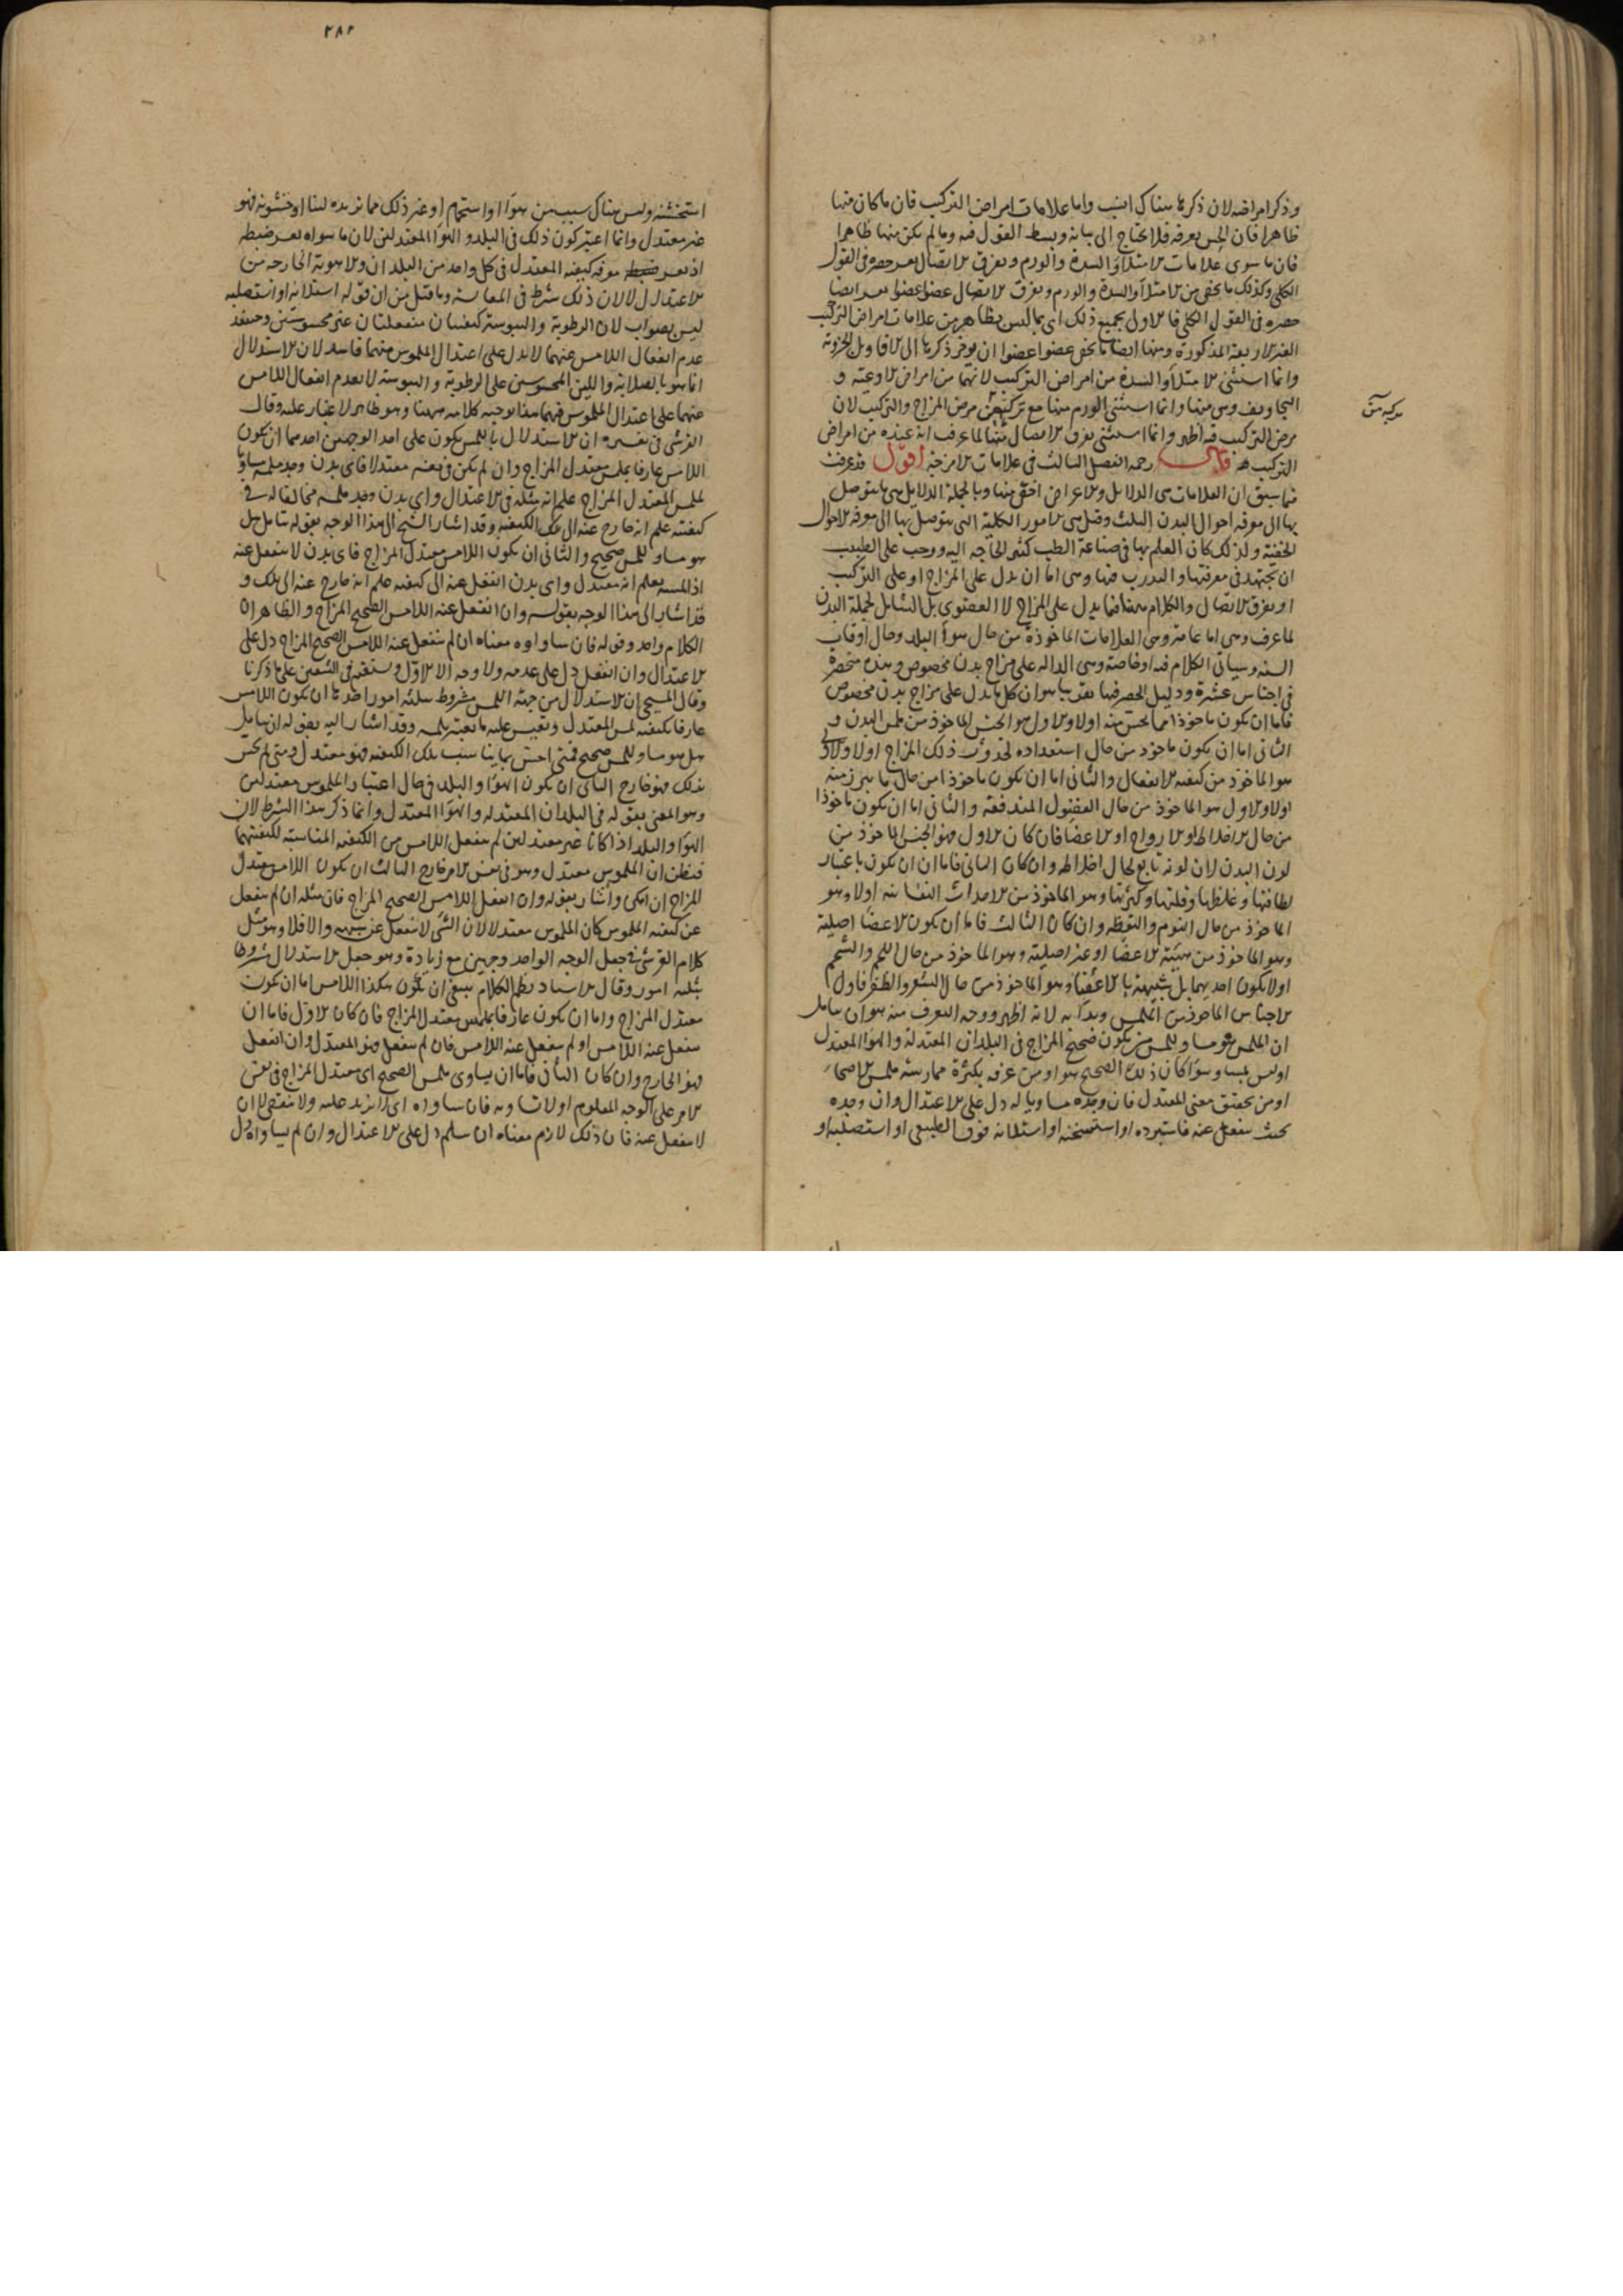 وذكر امراضه لان ذكرها هناك انسب واما علامات امراض التركيب فان ما كان منها
ظاهرا فان الحس يعرفه فلا يحتاج الى بيانه وبسط القول فيه وما لم يكن منها ظاهرا
فان ما سوى علامات الامتلاء والسدة والورم وتفرق الاتصال يعسر حصره فى القول
الكلى وكذلك ما يخفى من الامتلاء والسدة والورم وتفرق الاتصال عضوا عضوا يعسر ايضا
حصره فى القول الكلى فالاولى بجميع ذلك اى بما ليس بظاهر من علامات امراض التركيب
الغير الاربعة المذكورة ومنها ايضا ما يخفى عضوا عضوا ان يؤخر ذكرها الى الاقاويل الجزوية
وانما استثنى الامتلاء والسدة من امراض التركيب لانهما من امراض الاوعية و
التجاويف وهى منها وانما استثنى الورم منها مع تركبه من مرض المزاج والتركيب لان
مركبه من
مرض التركيب فيه اظهر وانما استثنى تفرق الاتصال منها لما عرفت انه عنده من امراض
التركيب قال رحمه الفصل الثالث فى علامات الامزجة اقول قد عرفت
فيما سبق ان العلامات هى الدلايل والاعراض اخص منها وبالجملة الدلايل هى ما يتوصل
بها الى معرفة احوال البدن الثلث وقيل هى الامور الكلية التى يتوصل بها الى معرفة الاحوال
الخفية ولذلك كان العلم بها فى صناعة الطب كثير الحاجة اليه ووجب على الطبيب
ان يجتهد فى معرفتها والتدرب فيها وهى اما ان يدل على المزاج او على التركيب
او تفرق الاتصال والكلام ههنا فيما يدل على المزاج لا العضوى بل الشامل لجملة البدن
لما عرفت وهى اما عامة وهى العلامات الماخوذة من حال هواء البلد وحال اوقات
السنة وسياتى الكلام فيه او خاصة وهى الدالة على مزاج بدن مخصوص وهذه منحصرة
فى اجناس عشرة ودليل الحصر فيها تقريبا هو ان كل ما يدل على مزاج بدن مخصوص
فاما ان يكون ماخوذا مما يحس منه اولا والاول هو الجنس الماخوذ من ملمس البدن و
الثانى اما ان يكون ماخوذ من حال استعداده لحدوث ذلك المزاج اولا والاول
هو الماخوذ من كيفية الانفعال والثانى اما ان يكون ماخوذا من حال ما يبرز منه
اولا والاول هو الماخوذ من حال الفضول المندفعة والثانى اما ان يكون ماخوذا
من حال الاخلاط او الارواح او الاعضا فان كان الاول فهو الجنس الماخوذ من
لون البدن لان لونه تابع لحال اخلاطه وان كان الثانى فاما ان يكون باعتبار
لطافتها وغلظها وقلتها وكثرتها وهو الماخوذ من الاحداث النفسانية اولا وهو
الماخوذ من حال النوم واليقظة وان كان الثالث فاما ان يكون الاعضا اصلية
وهو الماخوذ من هيئة الاعضا او غير اصلية وهو الماخوذ من حال اللحم والشحم
اولا يكون احديهما بل شبيهة بالاعضا وهو الماخوذ من حال الشعر والظفر فاول
الاجناس الماخوذ من الملمس وبدأ به لانه اظهر ووجه التعرف منه هو ان يتامل
ان الملمس هو مساو للمس من يكون صحيح المزاج فى البلدان المعتدلة والهواء المعتدل
اوليس بمساو سواء كان ذلك الصحيح هو او من عرفه بكثرة ممارسة ملمس الاصحاء
او من تحقق معنى المعتدل فان وجده مساويا له دل على الاعتدال وان وجده
بحيث ينفعل عنه فاستبرده او استسخنه او استلانه فوق الطبيعى او استصلبه او
٢٨٢
استخشنه وليس هناك سبب من هواء او استحمام او غير ذلك مما يزيده لينا او خشونة فهو
غير معتدل وانما اعتبر كون ذلك فى البلد والهواء المعتدلين لان ما سواه يعسر ضبطه
اذ يعسر معرفة كيفية المعتدل فى كل واحد من البلدان والاهوية الخارجة من
الاعتدال لا لان ذلك شرط فى المعاينة وما قيل من ان قوله استلانه او استصلبه
ليس بصواب لان الرطوبة واليبوسة كيفيتان منفعلتان غير محسوستين وحينئذ
عدم انفعال اللامس عنهما لا يدل على اعتدال الملموس منهما فاسد لان الاستدلال
انما هو بالصلابة واللين المحسوسين على الرطوبة واليبوسة لا بعدم انفعال اللامس
عنهما على اعتدال الملموس فيهما هذا توجيه كلامه ههنا وهو ظاهر لا غبار عليه وقال
القرشى فى تفسيره ان الاستدلال باللمس يكون على احد الوجهين احدهما ان يكون
اللامس عارفا بملمس معتدل المزاج وان لم يكن فى نفسه معتدلا فاى بدن وجد ملمسه مساويا
لملمس المعتدل المزاج علم انه مثله فى الاعتدال واى بدن وجد ملمسه مخالفا له فى
كيفيته علم انه خارج عنه الى تلك الكيفية وقد اشار الشيخ الى هذا الوجه بقوله يتامل هل
هو مساو للمس صحيح والثانى ان يكون اللامس معتدل المزاج فاى بدن لا ينفعل عنه
اذا لمسه يعلم انه معتدل واى بدن انفعل عنه الى كيفية علم انه خارج عنه الى تلك و
قد اشار الى هذا الوجه بقوله وان انفعل عنه اللامس الصحيح المزاج والظاهر ان
الكلام واحد وقوله فان ساواوه معناه ان لم ينفعل عنه اللامس الصحيح المزاج دل على
الاعتدال وان انفعل دل على عدمه ولا وجه الا الاول على ما ذكرنا
وقال المسيحى ان الاستدلال من جهة اللمس مشروط بثلثة امور احدها ان يكون اللامس
عارفا بكيفية لمس المعتدل ويقيس عليه ما يعتبره بلمسه وقد اشار اليه بقوله ان يتامل
هل هو مساو للمس صحيح فمتى احس بتلك الكيفية فهو معتدل ومتى لم يحس
بذلك فهو خارج الثانى ان يكون الهواء والبلد فى حال اعتبار الملموس معتدلين
وهو المعنى بقوله فى البلدان المعتدلة والهواء المعتدل وانما ذكر هذا الشرط لان
الهواء والبلد اذا كانا غير معتدلين لم ينفعل اللامس من الكيفية المناسبة لكيفيتهما
فيظن ان الملموس معتدل وهو فى نفس الامر خارج الثالث ان يكون اللامس معتدل
المزاج ان امكن واشار بقوله وان انفعل اللامس الصحيح المزاج فان مثله ان لم ينفعل
عن كيفية الملموس كان الملموس معتدلا لان الشى لا ينفعل عن شبيهه والا فلا وهو مثل
كلام القرشى فى جعل الوجه الواحد وجهين مع زيادة وهو جعل الاستدلال مشروطا
بثلثة امور وقال الاستاد نظم الكلام ينبغى ان يكون هكذا اللامس اما ان يكون
معتدل المزاج واما ان يكون عارفا بملمس معتدل المزاج فان كان الاول فاما ان
ينفعل عنه اللامس او لم ينفعل عنه اللامس فان لم ينفعل فهو المعتدل وان انفعل
فهو الخارج وان كان الثانى فاما ان يساوى ملمس الصحيح اى معتدل المزاج فى نفس
الامر على الوجه المعلوم اولا يساويه فان ساواه اى لا يزيد عليه ولا ينقص لا ان
لا ينفعل عنه فان ذلك لازم معناه ان سلم دل على الاعتدال وان لم يساواه دل